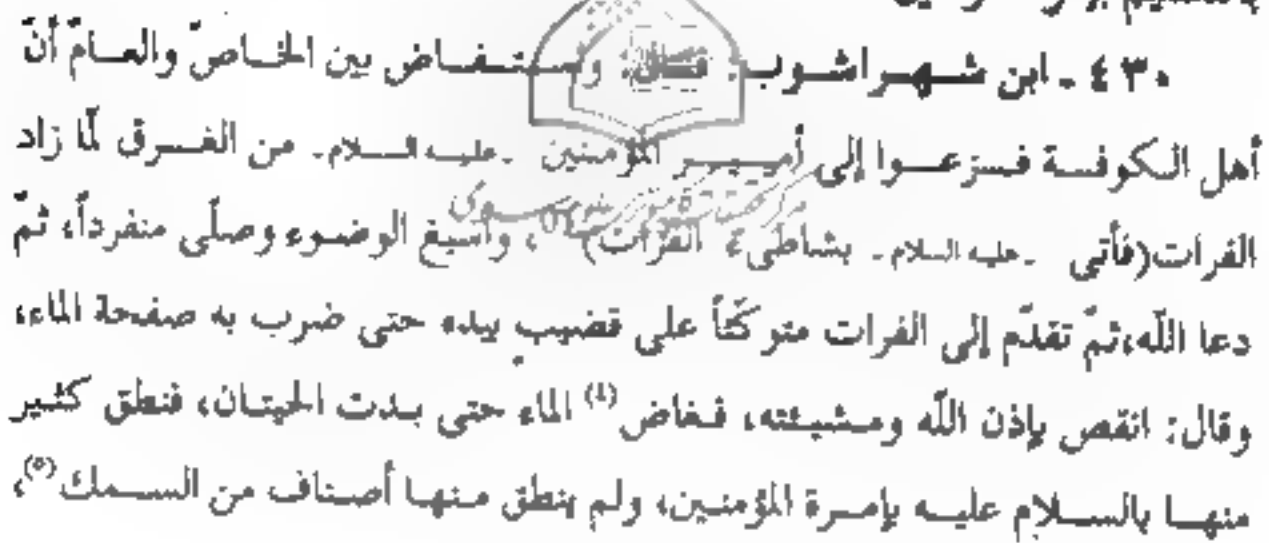 ٤٣٠ ـ ابن شهراشوب: قال: واستفاض بين الخاصّ والعامّ أنّ
أهل الكوفة فزعوا إلى أمير المؤمنين ـ عليه السلام ـ من الغرق لمّا زاد
الفرات(فأتى ـ عليه السلام ـ بشاطىء الفرات)، وأسبغ الوضوء وصلّى منفرداً، ثمّ
دعا اللّه،ثمّ تقدّم إلى الفرات متوكّئاً على قضيب بيده حتى ضرب به صفحة الماء،
وقال: انقص بإذن اللّه ومشيئته، فغاض(٤) الماء حتى بدت الحيتان، فنطق كثير
منها بالسلام عليه بإمرة المؤمنين، ولم ينطق منها أصناف من السمك(٥)،